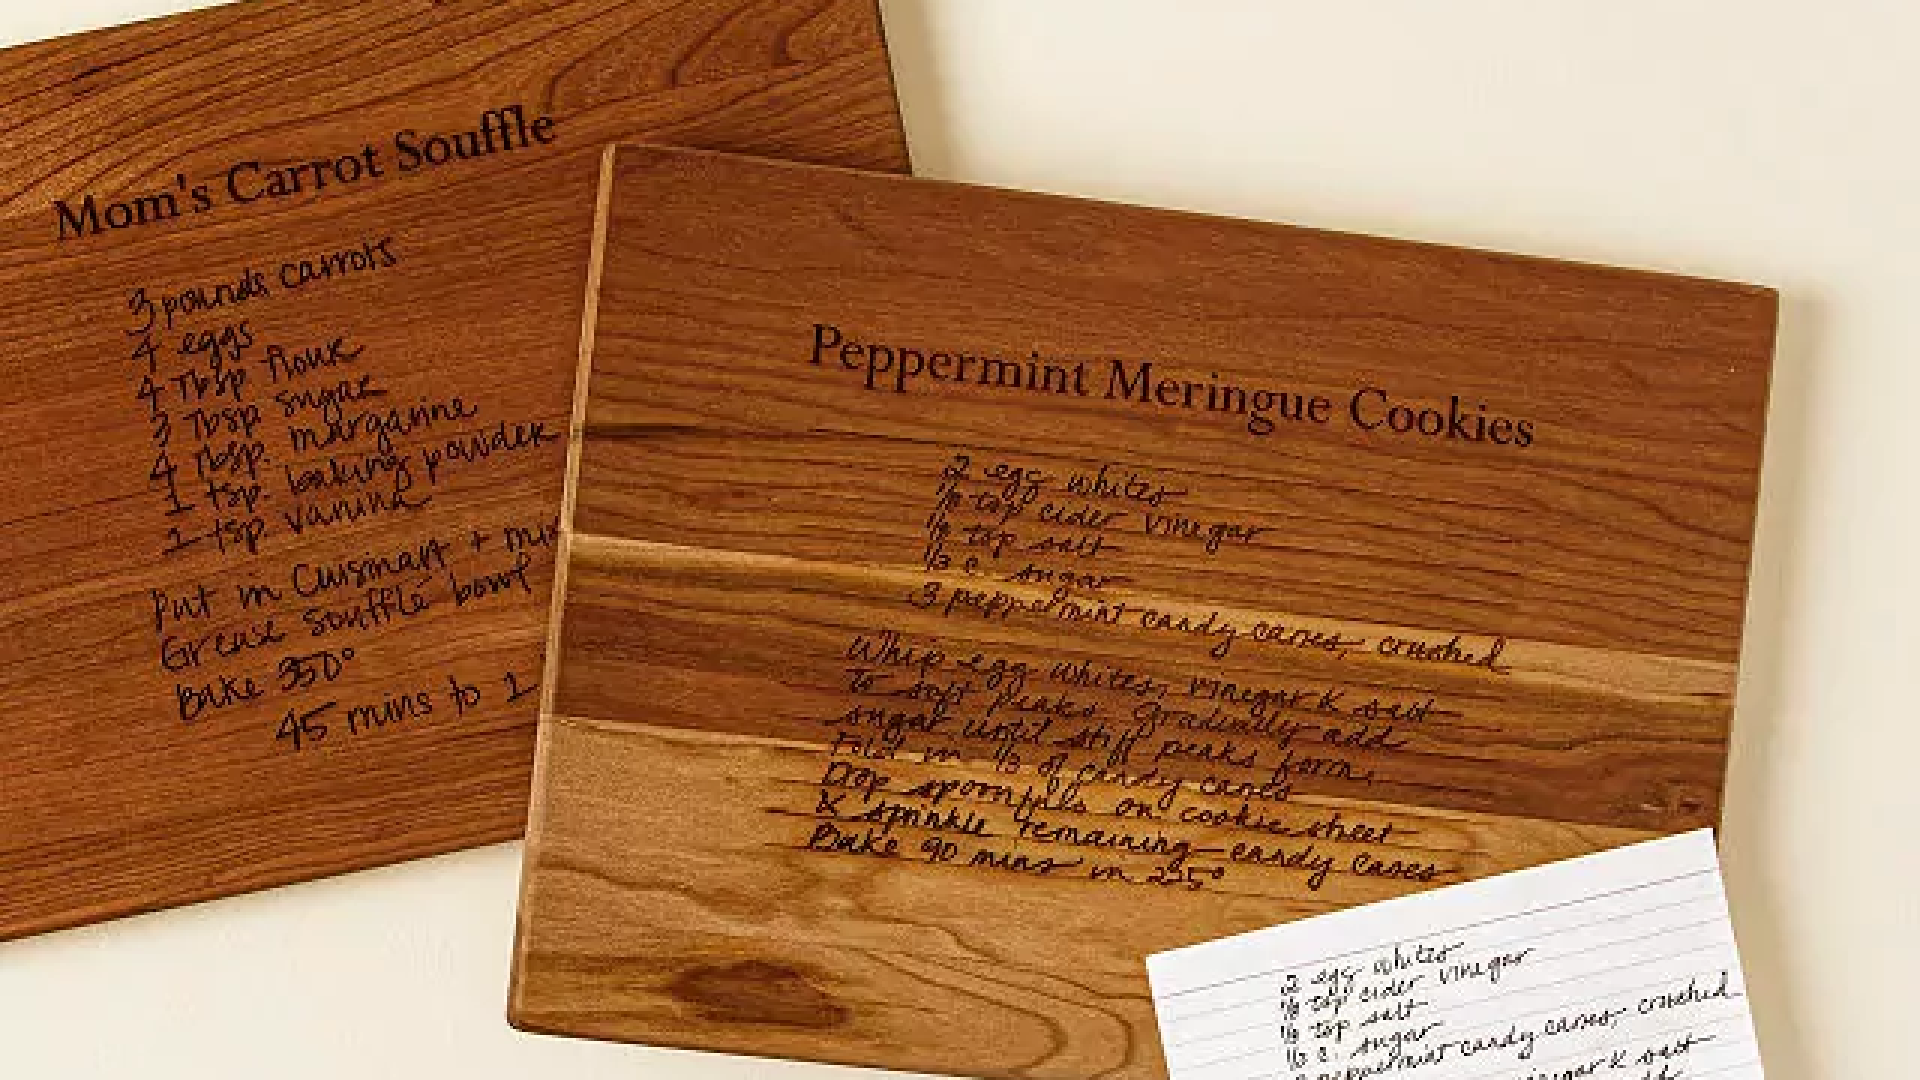 Mom's Carrot Souffle
3 pounds carrots
4 eggs
4 Tbsp flour
3 Tbsp sugar
4 Tbsp. margarine
1 tsp. baking powder
1 tsp. vanilla
Put in Cuisinart + mix
Grease Souffle bowl
Bake 350°
45 mins to 1
Peppermint Meringue Cookies
2 egg whites
tsp cider vinegar
tsp salt
c. sugar
3 peppermint candy canes, crushed
Whip egg whites, vinegar & salt
to soft Peaks. Gradually add
sugar until stiff peaks form.
Fold in 1/3 of candy canes
Drop spoonfuls on cookie sheet
& sprinkle remaining candy canes
Bake 90 mins in 225°
2 egg whites
tsp cider vinegar
tsp salt
c. sugar
peppermint candy canes, crushed
vinegar & salt